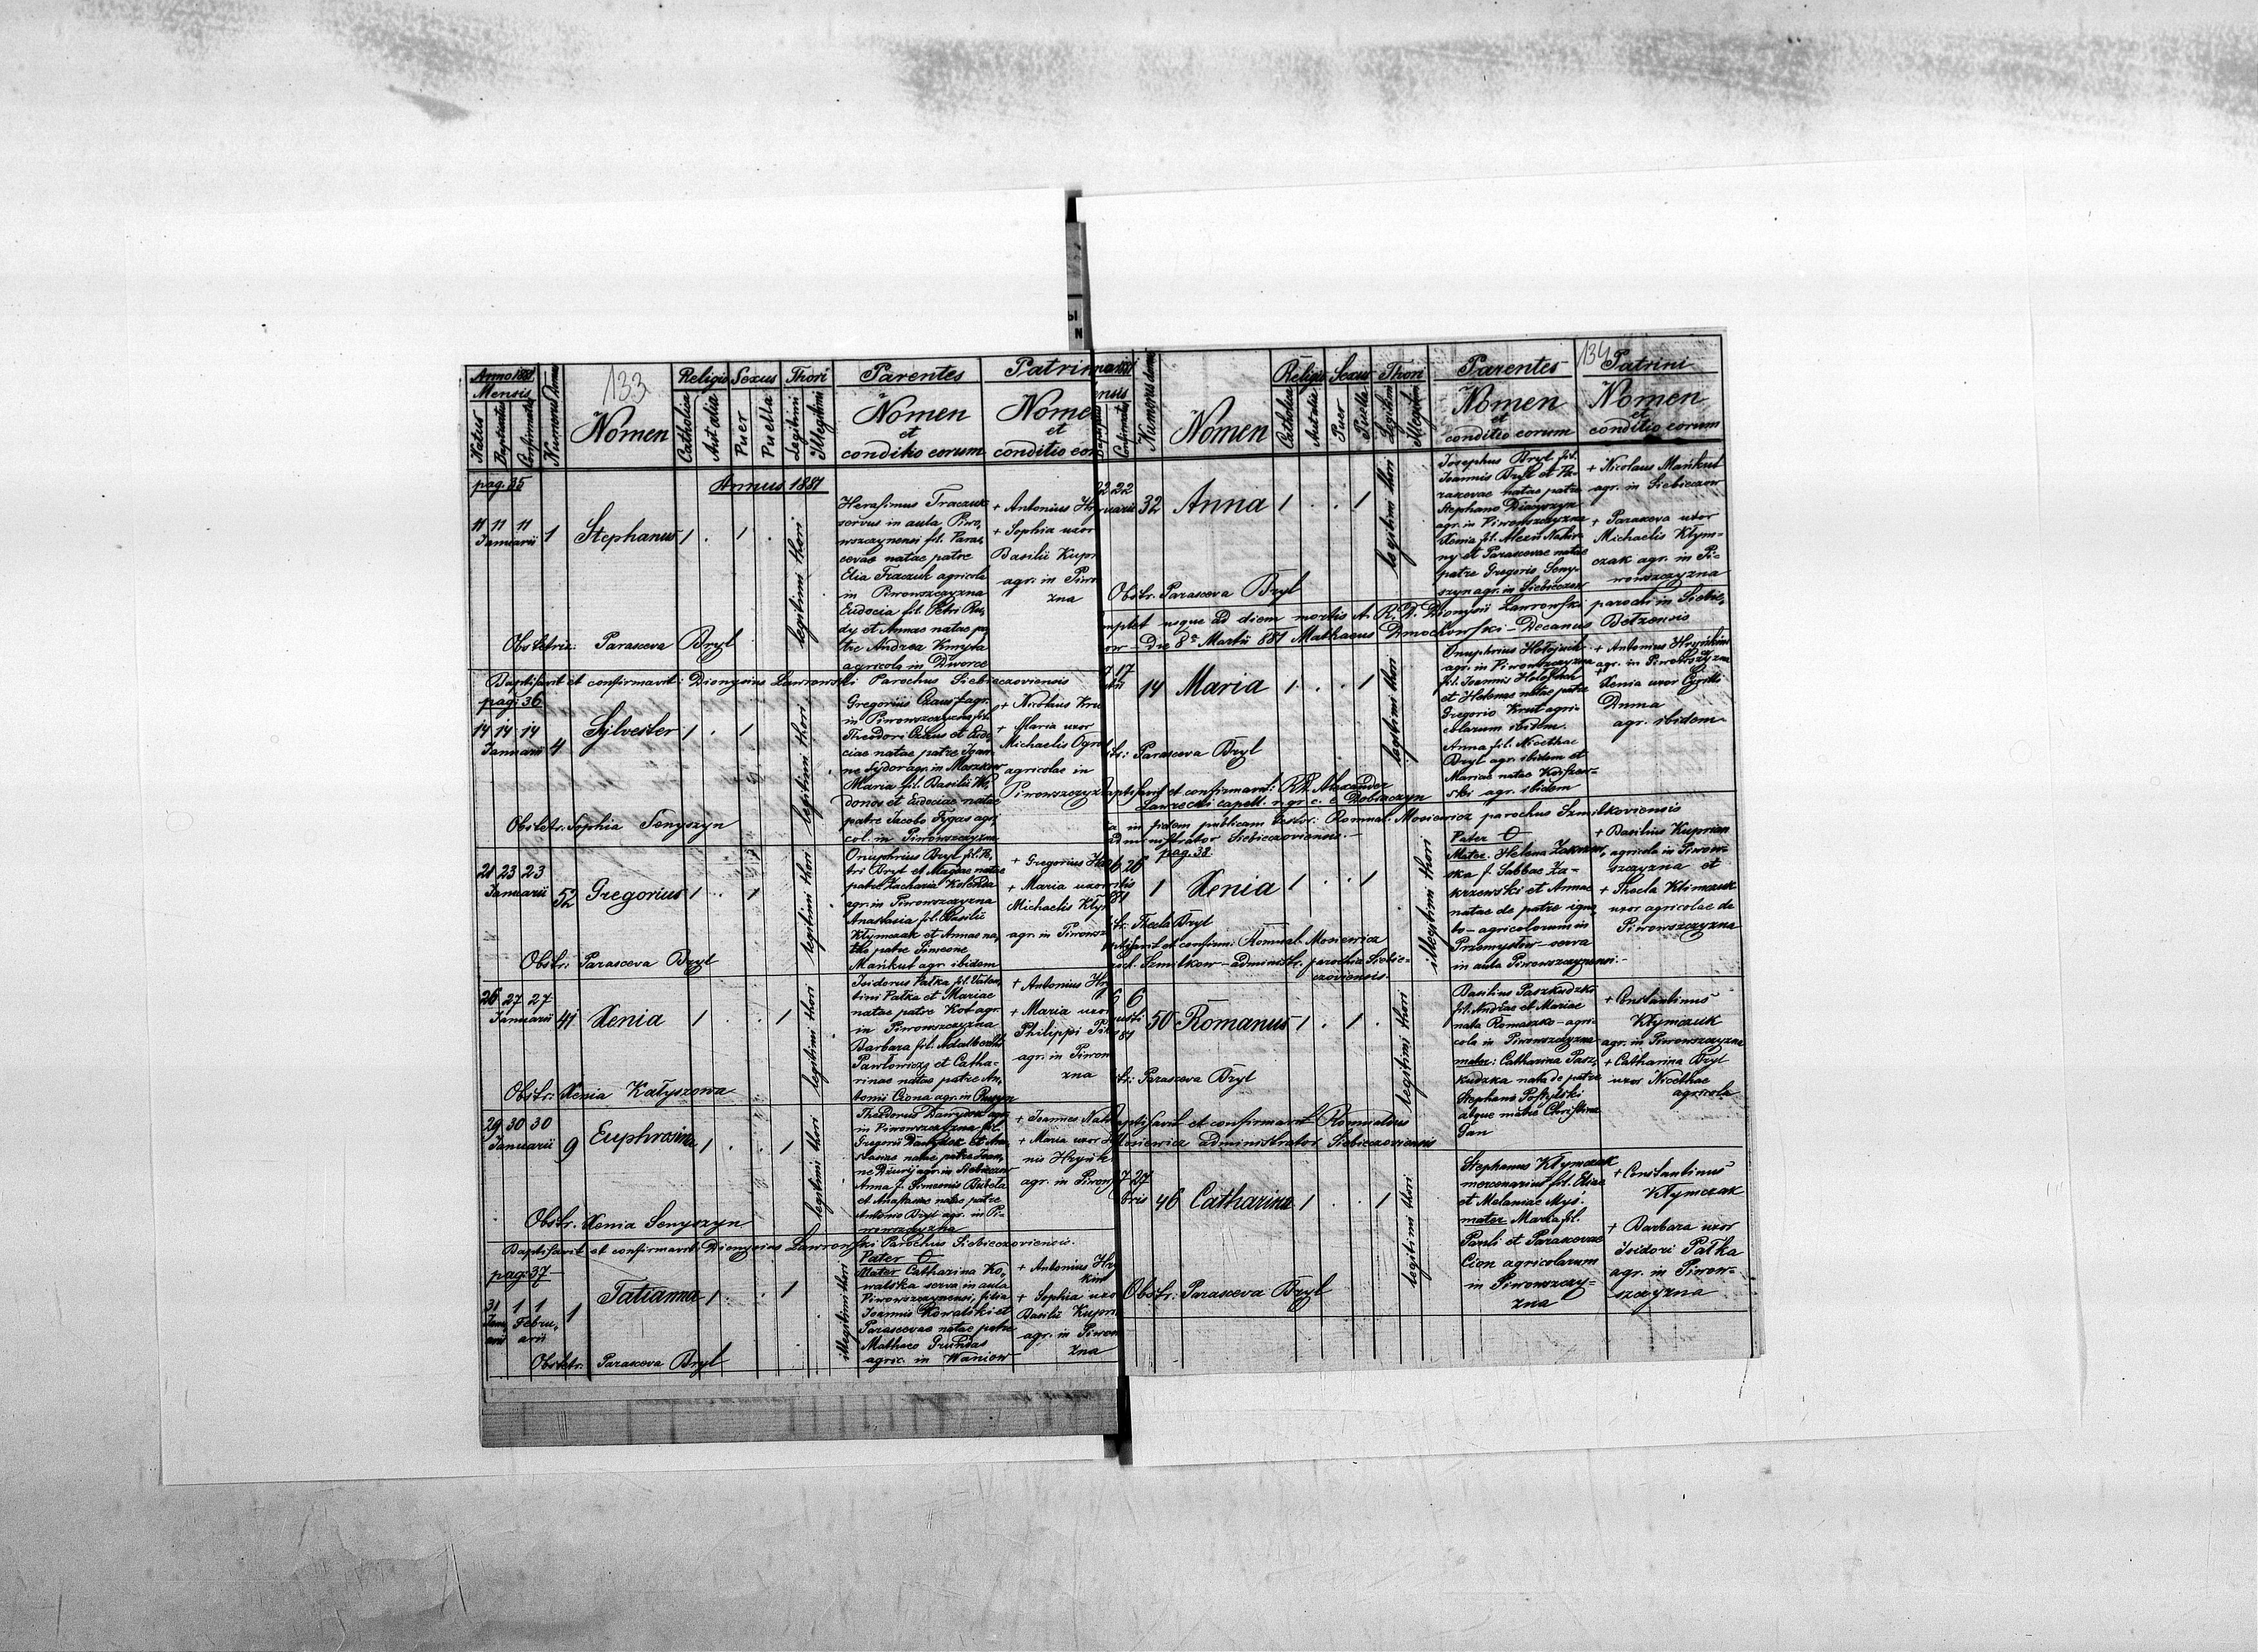 Anno 1881
Mensis
Natus
Baptisatus
Confirmatus
Numerus domus
133
Nomen
Religio
Catholica
Aut alia
Sexus
Puer
Puella
Thori
Legitimi
Illegitimi
Parentes
Nomen
et
conditio eorum
Patrin
Nome
et
conditio eor
pag. 35
Annus 1881
11 11 11
Januarii
1
Stephanus
1 . 1 .
legitimi thori
Herasimus Traczuk
servus in aula Piwo,
wszczynensi fil. Paras,
cevae natae patre
Elia Traczuk agricola
in Piwowszczyzna
Eudocia fil. Petri
dy et Annae natae pa
tre Andrea Kmyta
agricola in Dworce
+ Antonius Hry
+ Sophia uxor
Basilii Kupr
agr. in Piwo
zna
Obstetrix: Parasceva Bryl
Baptisavit et confirmavit: Dionysius Lawrowski Parochus Siebieczoviensis
pag. 36
14 14 14
Januarii
4
Sylvester
1 . 1
legitimi thori
Gregorius Czaus agr.
in Piwowszczyzna fil.
Theodori Czaus et Eudo,
ciae natae patre Joan,
ne Sydor agr. in Moszkow
Maria fil. Basilii
donos et Eudociae natae
patre Jacobo Fygas agri
col. in Piwowszczyzna
+ Nicolaus Kru
+ Maria uxor
Michaelis Ogro
agricolae in
Piwowszczyz
Obstetr. Sophia Senyszyn
21 23 23
Januarii
52
Gregorius
1 . 1
legitimi thori
Onuphrius Bryl fil. Pe,
tri Bryl et Magdae natae
patre Zacharia Kolenda
agr. in Piwowszczyzna
Anastasia fil. Basilii
Klymczak et Annae na,
tae patre Simeone
Mańkut agr. ibidem
+ Gregorius
+ Maria uxor
Michaelis Kly
agr. in Piwows
Obstr: Parasceva Bryl
26 27 27
Januarii
41
Xenia
1 . . 1
legitimi thori
Isidorus Pałka fil. Valen,
tini Pałka et Mariae
natae patre Kot agr.
in Piwowszczyzna
Barbara fil. Adalberti
Pawłowicz et Catha-
rinae natae patre An,
tonii Czona agr. in
+ Antonius Hry
+ Maria uxor
Philippi
agr. in Piwow
zna
Obstr: Xenia Kałyszowa
29 30 30
Januarii
9
Euphrosina
1 . . 1
legitimi thori
Theodorus Dawyskz agr.
in Piwowszczyzna fil.
Gregorii et Ana,
stasiae natae patre Joan,
ne agr. in Siebieczow
Anna f. Simeonis Bubela
et Anastasiae natae patre
Antonio Bryl agr. in Pi-
wowszczyzna
+ Joannes
+ Maria uxor
nis Hryńk
agr. in Piwow
Obstr. Xenia Senyszyn
Baptisavit et confirmavit: Dionysius Lawrowski Parochus Siebieczoviensis.
pag. 37
31 1 1
Janu, Febru,
arii arii
1
Tatianna
1 . . 1
illegitimi thori
Pater O
Mater Catharina Ko,
walska serva in aula
Piwowszczynensi, filia
Joannis Kowalski et
Parascevae natae patre
Mathaeo Grundas
agric. in Waniow
+ Antonius Hry
kiw
+ Sophia uxor
Basilii Kupri
agr. in Piwow
zna
Obstetr. Parasceva Bryl
134
Numerus domus
Nomen
Religio
Catholica
Aut alia
Sexus
Puer
Puella
Thori
Legitimi
Illegitimi
Parentes
Nomen
et
conditio eorum
Patrini
Nomen
et
conditio eorum
22 22
32
Anna
1 . . 1
legitimi thori
Josephus Bryl fil.
Joannis Bryl et Pa-
rascevae natae patre
Stephano
agr. in Piwowszczyzna
Xenia fil. Alexii
ny et Parascevae natae
patre Gregorio Seny-
szyn agr. in Siebieczow
+ Nicolaus Mańkut
agr. in Siebieczow
+ Parasceva uxor
Michaelis Kłym-
czak agr. in Pi-
wowszczyzna
Obstr. Parasceva Bryl
usque ad diem mortis A. R. D. Dionysii Lawrowski parochi in Siebie,
ow Die 8a Martii 881 Mathaeus Dmochowski - Decanus Bełzensis
17
14
Maria
1 . . . 1
legitimi thori
Onuphrius Hołojuch
agr. in Piwowszczyzna
fil. Joannis Hołojuch
et Helenae natae patre
Gregorio Krut agri-
colarum ibidem.
Anna fil. Nicethae
Bryl agr. ibidem et
Mariae natae
ski agr. ibidem
+ Antonius Hryńkiw
agr. in Piwowszczyzna
Xenia uxor Cyrilli
Duma
agr. ibidem
Parasceva Bryl
aptisavit et confirmavit: Rd. Alexander
Lawrecki capell. r. gr. c. e Dobraczyn
in fidem publicam testor: Romual. Mosiewicz parochus Szmitkoviensis
administrator Siebieczoviensis.
pag. 38
26
1
Xenia
1 . . 1
illegitimi thori
Pater O
Mater. Helena Zakrzew,
ska f. Sabbae Za-
krzewski et Annae
natae de patre igno,
to - agricolorum in
Przemysłow - serva
in aula Piwowszczyznensi.
+ Basilius Kuprian
agricola in Piwow-
szczyzna et
+ Thecla Klimczuk
uxor agricolae de
Piwowszczyzna
Thecla Bryl
tisavit et confirm: Romual. Mosiewicz
Szmitkow - administr. parochiae Siebie-
czoviensis.
6 6
50
Romanus
1 . 1 .
legitimi thori
Basilius Paszkudzki
fil. Andreae et Mariae
nata Romaszko - agri-
cola in Piwowszczyzna
mater: Catharina Pasz,
kudzka nata de patre
Stephano Postylski
atque matre Christina
Gan
+ Constantinus
Kłymczuk
agr. in Piwowszczyzna
+ Catharina Bryl
uxor Nicethae
agricola
Parasceva Bryl
aptisavit et confirmavit Romualdus
Mosiewicz administrator Siebieczoviensis
27
46
Catharina
1 . . 1
legitimi thori
Stephanus Kłymczak
mercenarius fil. Eliae
et Melaniae Myś.
mater Maria fil.
Pauli et Parascevae
Cion agricolarum
in Piwowszczy-
zna
+ Constantinus
Kłymczak
+ Barbara uxor
Isidori Pałka
agr. in Piwow-
szczyzna
Obstr: Parasceva Bryl